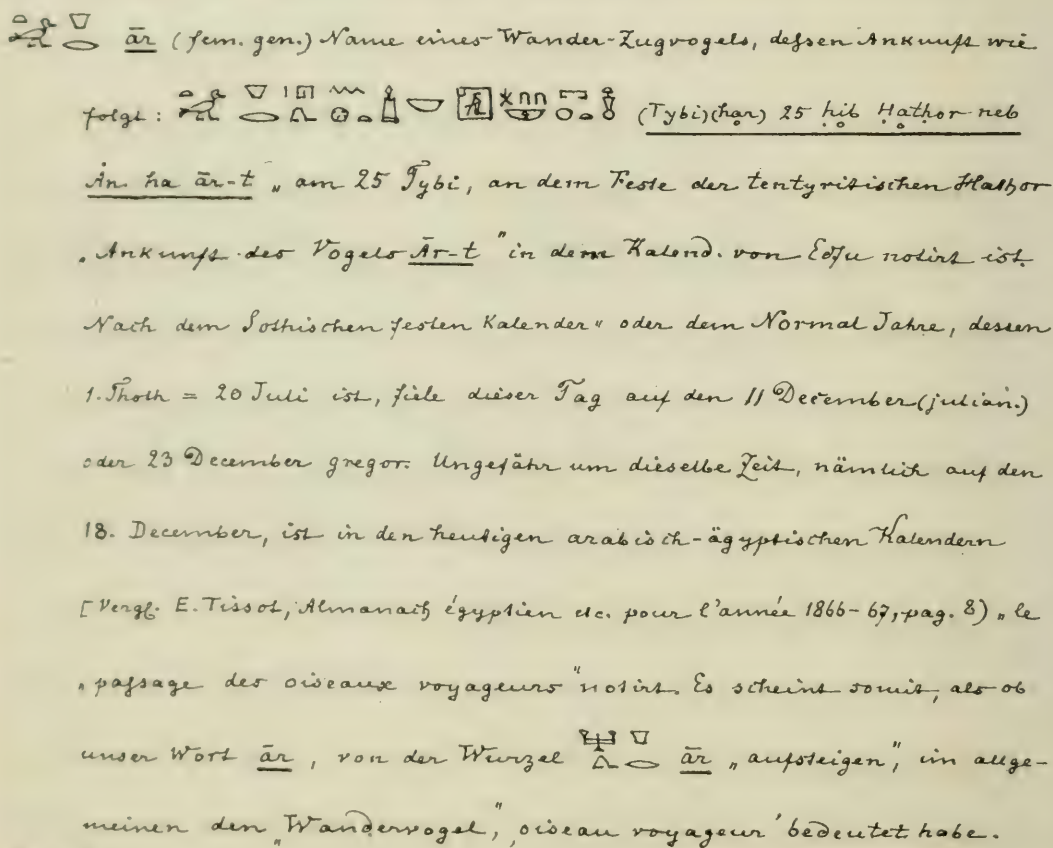 ār (fem. gen.) Name eines Wander-Zugvogels, dessen Ankunft wie
folgt: (Tybi)(hạn) 25 ḥib Hạthor neb
Ȧn ha ār-t „am 25 Tybi, an dem Feste der tentyritischen Hathor
„Ankunft des Vogels Ār-t" in dem Kalend. von Edfu notirt ist.
Nach dem Sothischen festen Kalender" oder dem Normal Jahre, dessen
1. Thoth = 20 Juli ist, fiele dieser Tag auf den 11 December (julian.)
oder 23 December gregor. Ungefähr um dieselbe Zeit, nämlich auf den
18. December, ist in den heutigen arabisch-ägyptischen Kalendern
[Vergl. E. Tissot, Almanach égyptien etc. pour l'année 1866-67, pag. 8) „le
„passage des oiseaux voyageurs" notirt. Es scheint somit, als ob
unser Wort ār, von der Wurzel ār „aufsteigen", im allge-
meinen den „Wandervogel", oiseau voyageur' bedeutet habe.